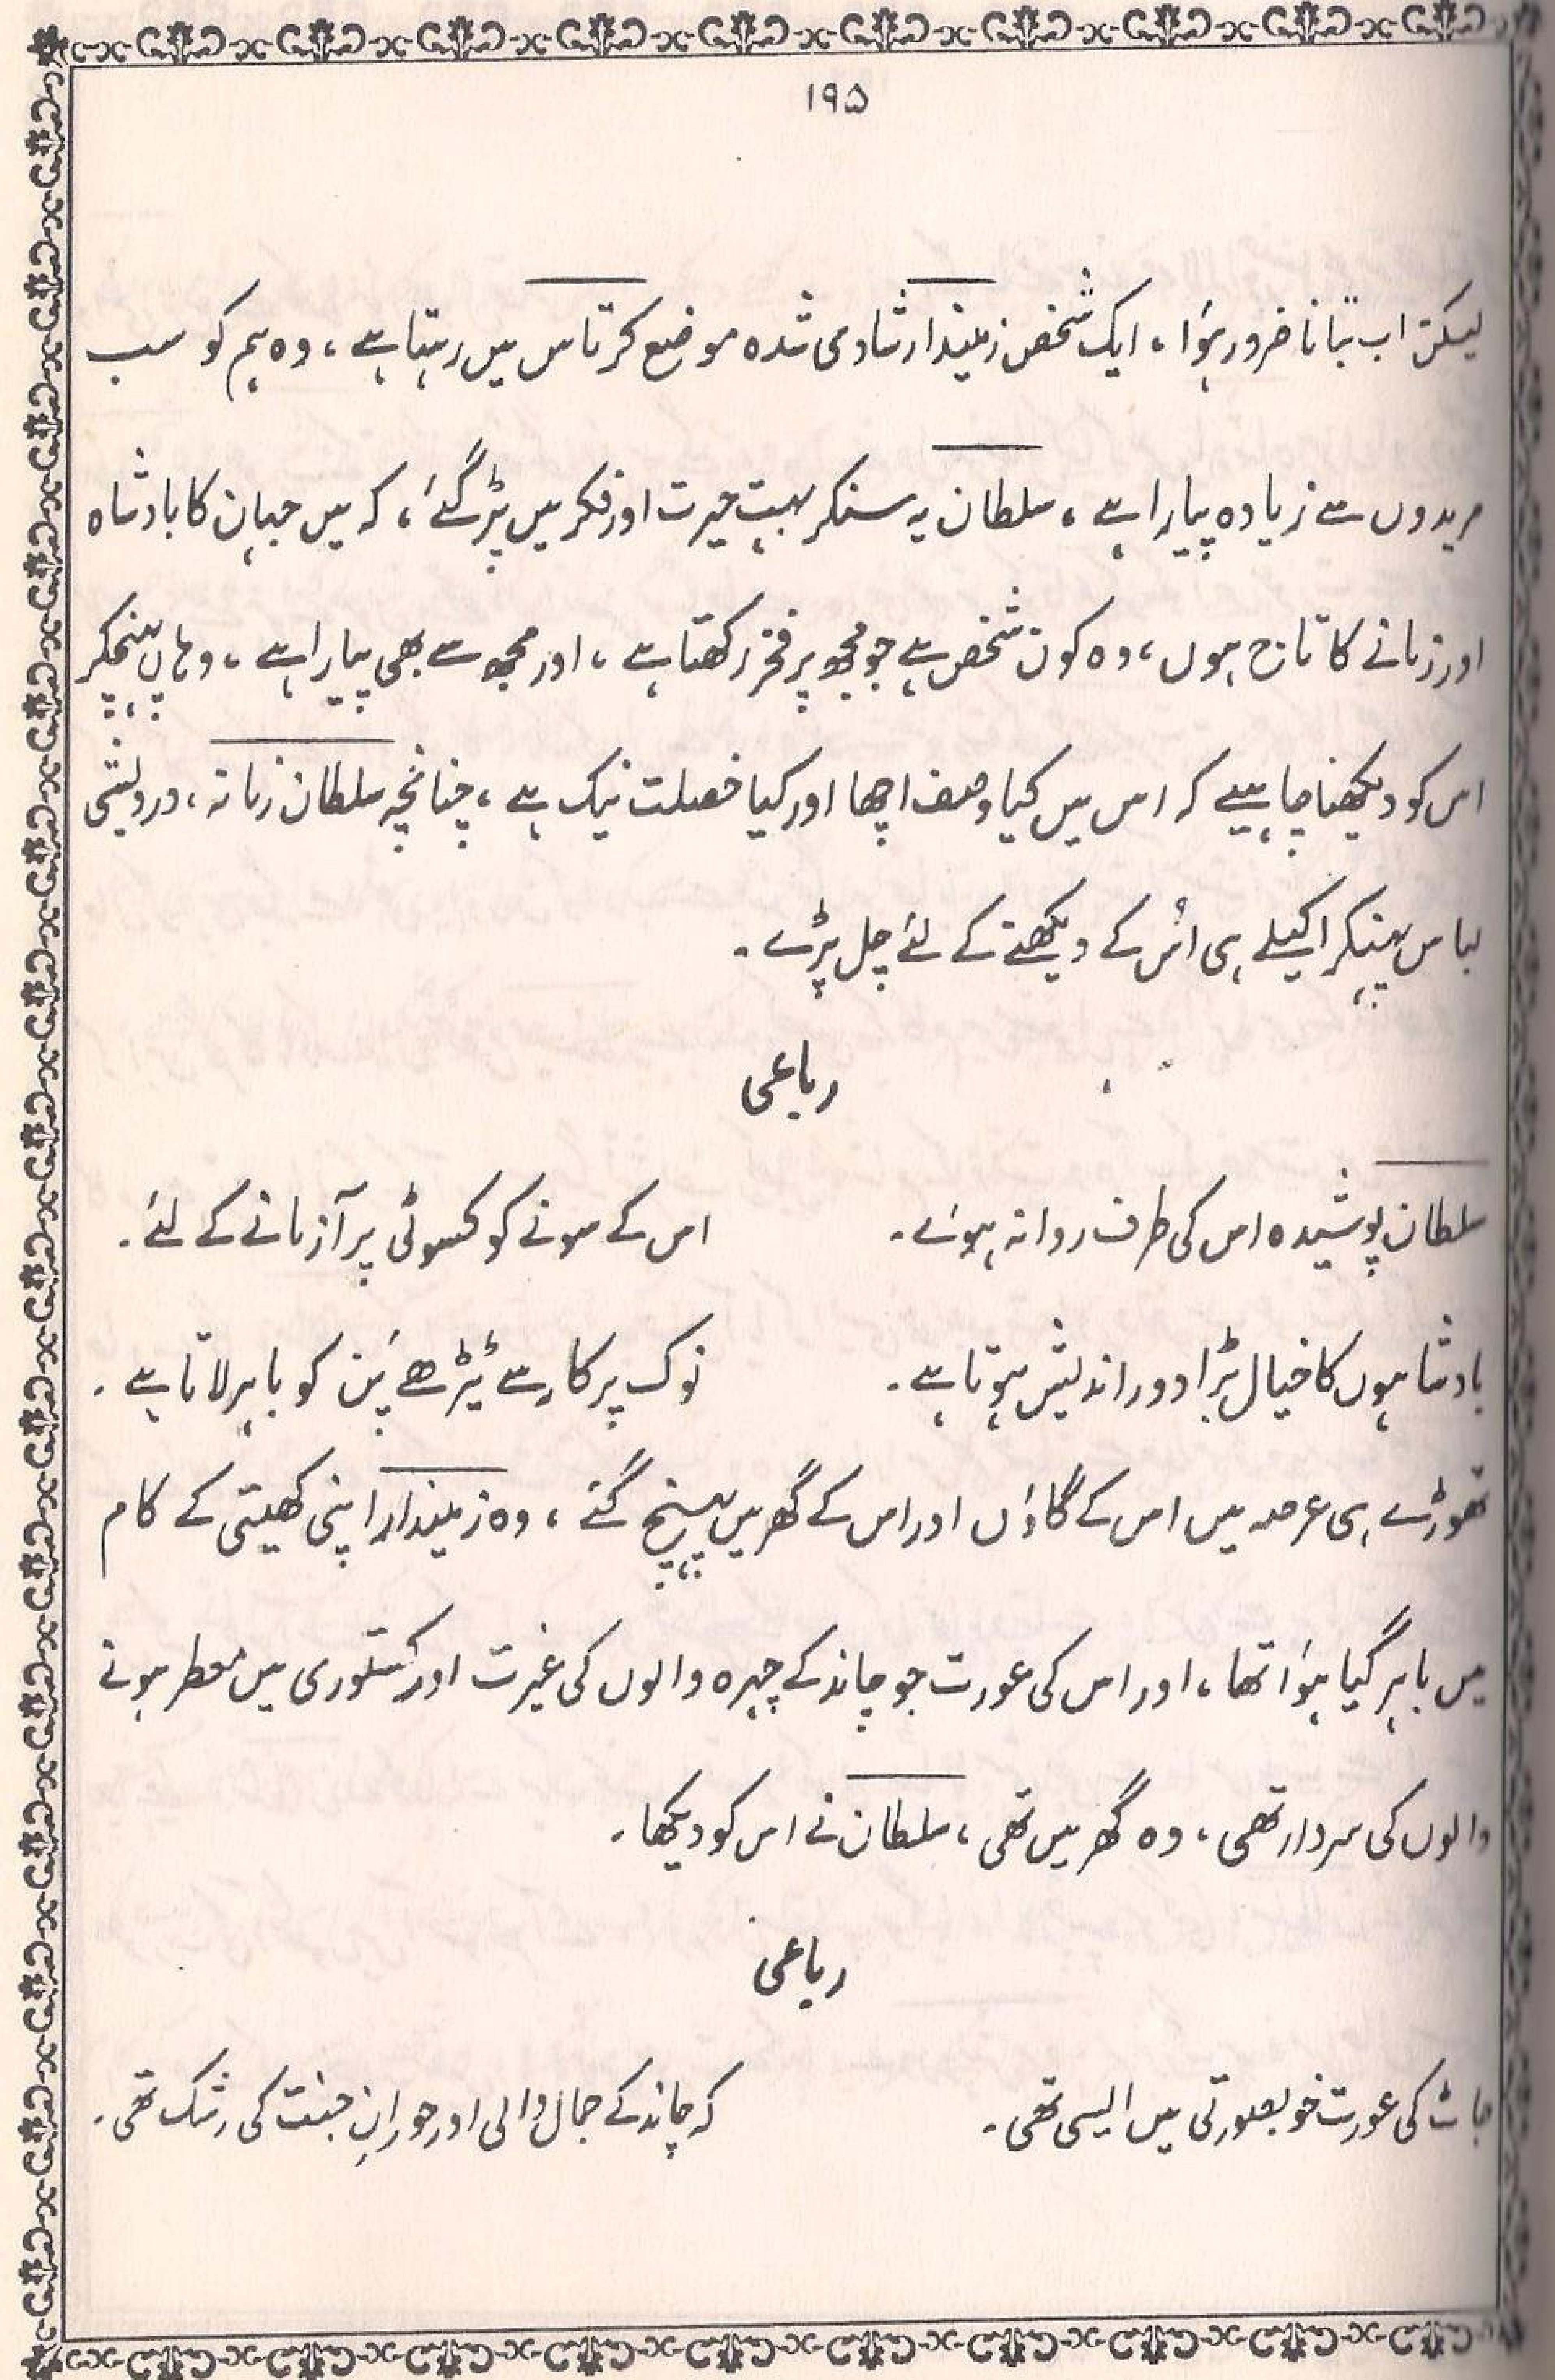 ۱۹۵
لیکن اب بتانا ضرور ہؤا، ایک شخص زمیندار شادی شدہ موضع کرتاس میں رہتا ہے، وہ ہم کو سب
مریدوں سے زیادہ پیارا ہے، سلطان یہ سنکر بہت حیرت اور فکر میں پڑ گئے، کہ میں جہان کا بادشاہ
اور زمانے کا تاج ہوں، وہ کون شخص ہے جو مجھ پر فخر رکھتا ہے، اور مجھ سے بھی پیارا ہے، وہاں پہنچکر
اس کو دیکھنا چاہیے کہ اس میں کیا وصف اچھا اور کیا خصلت نیک ہے، چنانچہ سلطان زمانہ، درویشی
لباس پہنکر اکیلے ہی اُس کے دیکھنے کے لئے چل پڑے۔
رباعی
سلطان پوشیدہ اس کی طرف روانہ ہوئے۔ اس کے سونے کو کسوٹی پر آزمانے کے لئے۔
بادشاہوں کا خیال بڑا دور اندیش ہوتا ہے۔ نوک پرکار سے ٹیڑھے پَن کو باہر لاتا ہے۔
تھوڑے ہی عرصہ میں اس کے گاؤں اور اس کے گھر میں پہنچ گئے، وہ زمیندار اپنی کھیتی کے کام
میں باہر گیا ہؤا تھا، اور اس کی عورت جو چاند کے چہرہ والوں کی غیرت اور کستوری میں معطر ہونے
والوں کی سردار تھی، وہ گھر میں تھی، سلطان نے اس کو دیکھا۔
رباعی
جاٹ کی عورت خوبصورتی میں ایسی تھی۔ کہ چاند کے جمال والی اور حورانِ جنت کی رشک تھی۔